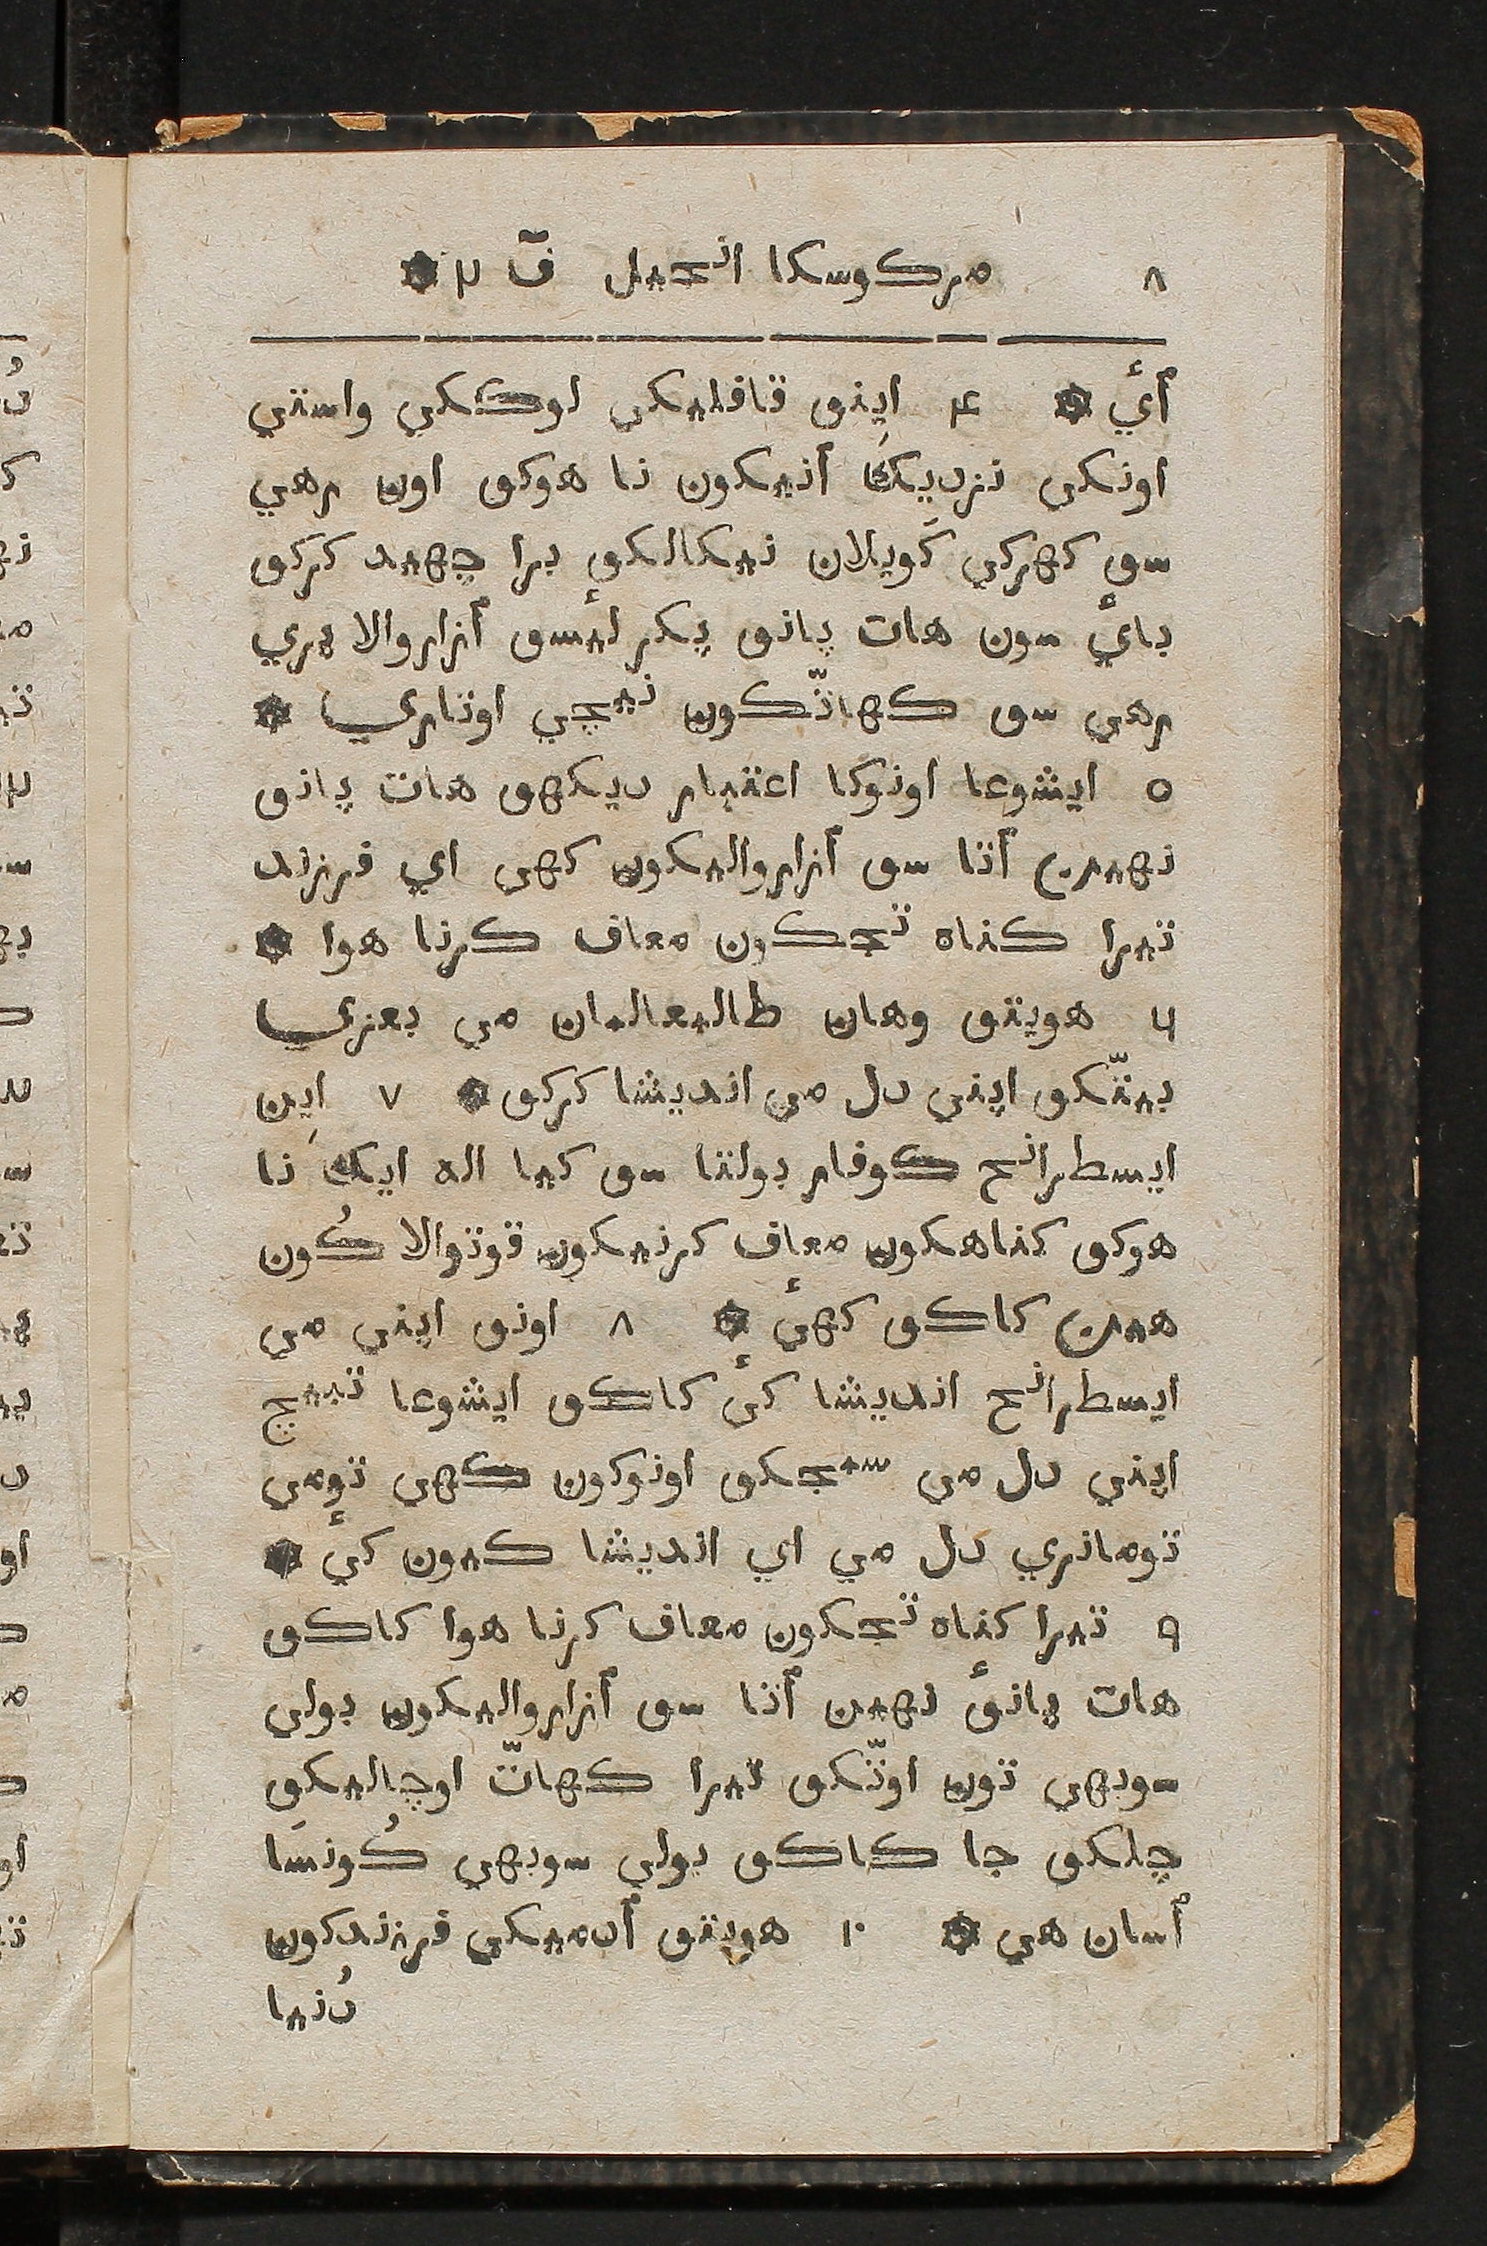 ۸ مرکوسکا انجیل ف ۲
أئي ۴ اپنی قافلیکی لوککي واستي
اونکی نزدیک أنیکون نا هوکی اون رهي
سی کهرکي کویلان نیکالکي برا چهید کرکی
بائي سون هات پانی پکر لیسی أزاروالا پري
رهی سی کهاٹکون نیچي اوتاري
۵ ایشوعا اونوکا اعتبار دیکهی هات پانی
نهین أتا سی أزاروالیکون کهی اي فرزند
تیرا کناه تجکون معاف کرنا هوا
۶ هویتی وهان طالیعالمان مي بعزي
بیتّکی اپني دل مي اندیشا کرکی ۷ این
ایسطرانح کوفار بولتا سی کیا اله ایک نا
هوکی کناهکون معاف کرنیکون قوتوالا کون
هین کاکی کهئ ۸ اونی اپني مي
ایسطرانح اندیشا کئ کاکی ایشوعا تبیچ
اپني دل مي سمجکی اونوکون کهی تومي
توماتري دل مي اي اندیشا کیون کئ
۹ تیرا کناه تجکون معاف کرنا هوا کاکی
هات پانی نهین أتا سی أزاروالیکون بولی
سوبهي تون اوتّکی تیرا کهاتّ اوچالیکی
چلکی جا کاکی بولي سوبهي کونسا
أسان هي ۱۰ هویتی أدمیکي فرزندکون
دُنیا